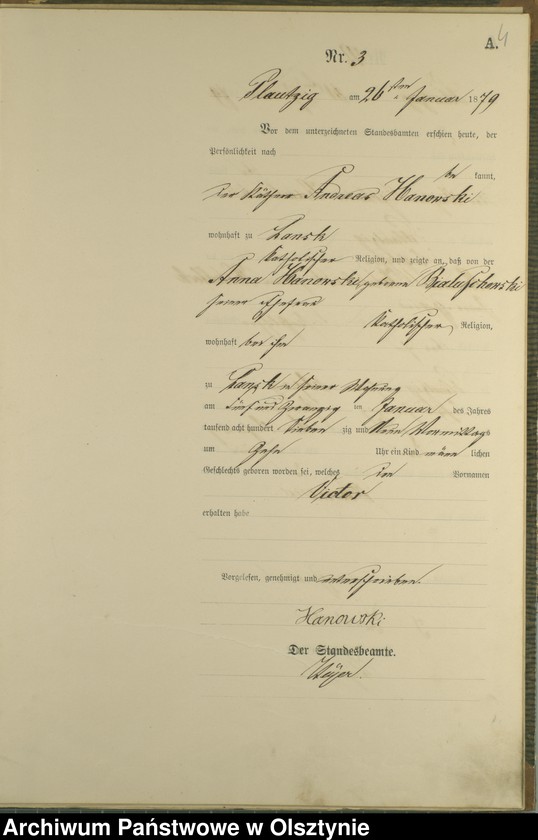 A. 4
Nr. 3
Plautzig am 26ten Januar 1879
Vor dem unterzeichneten Standesbeamten erschien heute, der
Persönlichkeit nach
be kannt,
der Käthner Andreas Hanowski
wohnhaft zu Lansk
Katholischer Religion, und zeigte an, daß von der
Anna Hanowski, geborene
seiner Ehefrau
Katholischer Religion,
wohnhaft bei ihm
zu Lansk in seiner Wohnung
am fünf und zwanzig ten Januar des Jahres
tausend acht hundert sieben zig und neun Vormittags
um Zehn Uhr ein Kind männ lichen
Geschlechts geboren worden sei, welches den Vornamen
Victor
erhalten habe
Vorgelesen, genehmigt und unterschrieben.
Hanowski
Der Standesbeamte.
Archiwum Państwowe w Olsztynie